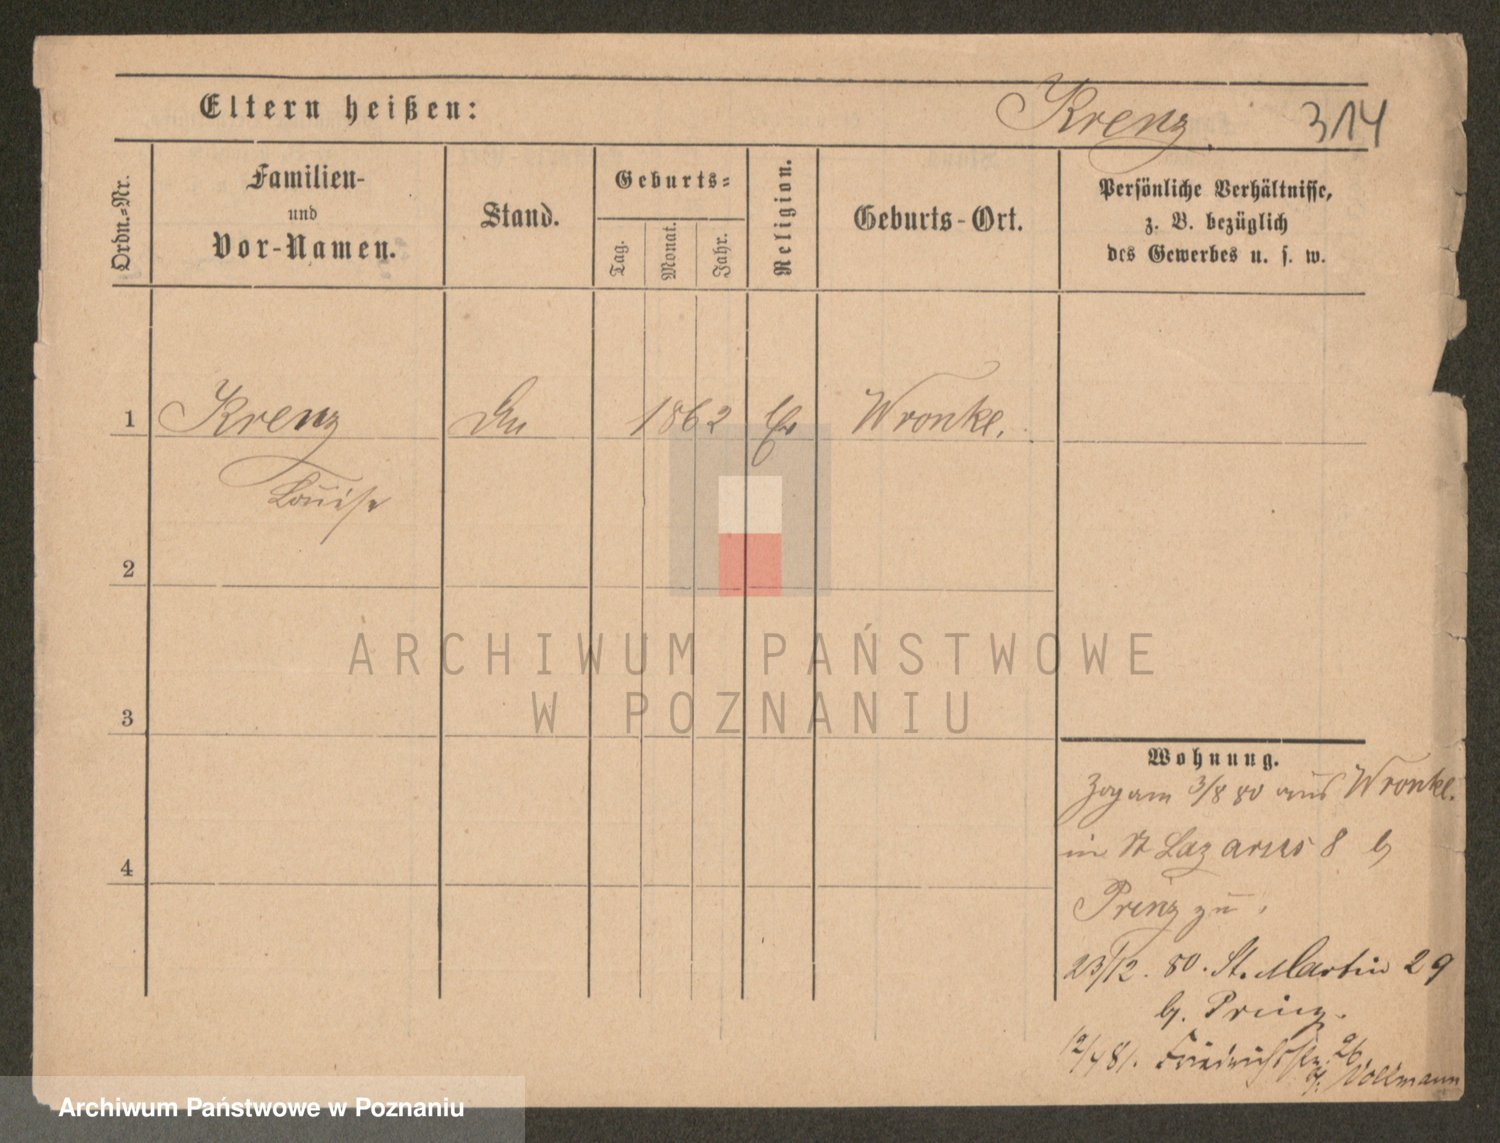 Eltern heißen:
Krenz. 314
Ordn.-Nr.
Familien-
und
Vor-Namen.
Stand.
Geburts-
Tag.
Monat.
Jahr.
Religion.
Geburts-Ort.
Persönliche Verhältnisse,
z. B. bezüglich
des Gewerbes u. s. w.
1 Krenz 1862 Wronke.
Louise
2
ARCHIWUM PAŃSTWOWE
W POZNANIU
3
Wohnung.
Zog am 3/8 80 aus Wronke.
in St Lazarus 8 b
Prinz zu.
4
23/12. 80. St. Martin 29
b. Prinz.
12/4 81. Friedrichstr. 26
b. Vollmann
Archiwum Państwowe w Poznaniu